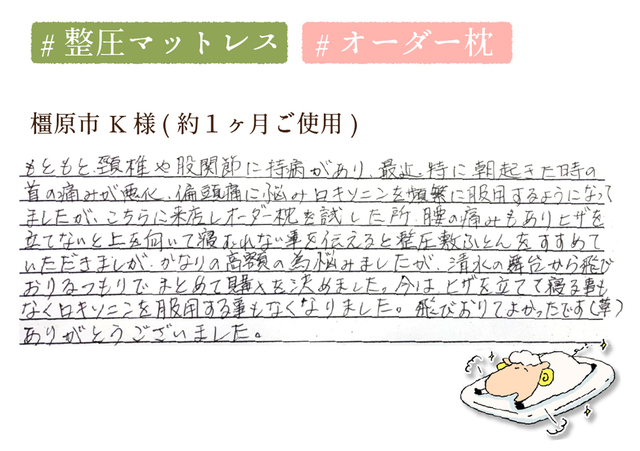 #整圧マットレス
#オーダー枕
橿原市 K 様 ( 約１ヶ月ご使用 )
もともと、頸椎や股関節に持病があり、最近、特に朝起きた時の
首の痛みが悪化、偏頭痛に悩みロキソニンを頻繁に服用するようになって
ましたが、こちらに来店しオーダー枕を試した所、腰の痛みもありヒザを
立てないと上を向いて寝れない事を伝えると整圧敷ふとんをすすめて
いただきましが、かなりの高額の為悩みましたが、清水の舞台から飛び
おりるつもりでまとめて購入を決めました。今はヒザを立てて寝る事も
なくロキソニンを服用する事もなくなりました。飛びおりてよかったです(草)
ありがとうございました。